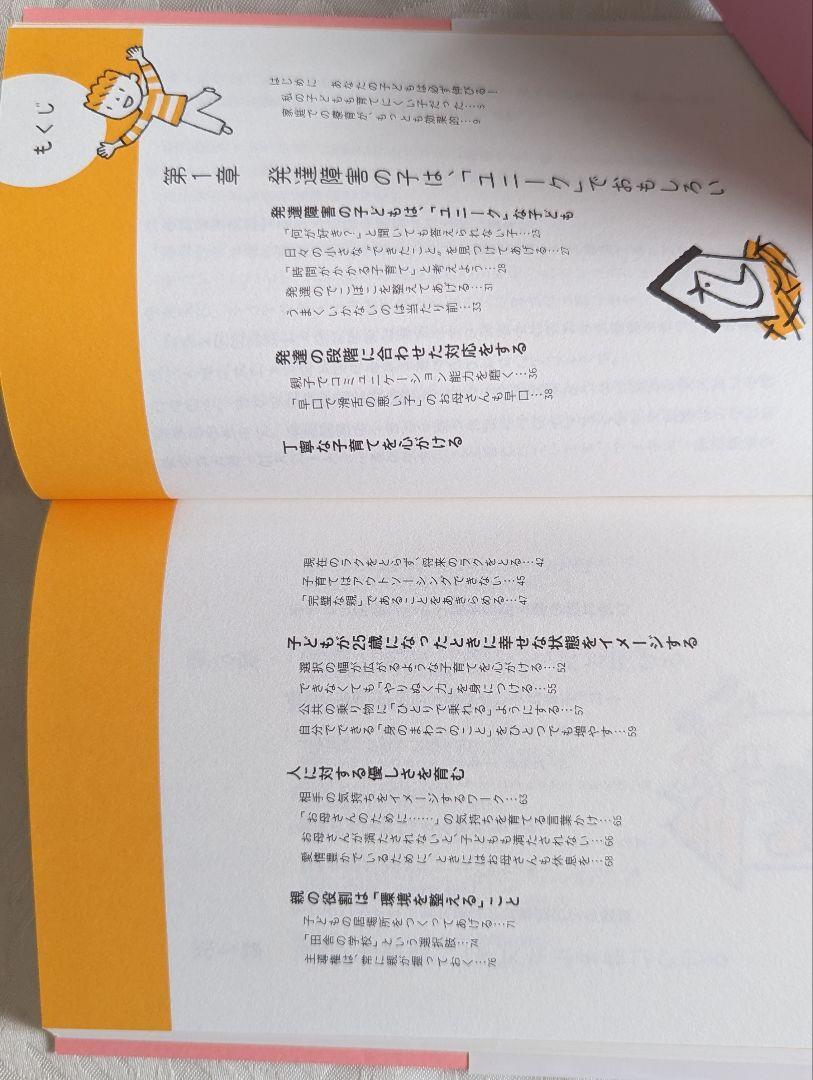 もくじ
はじめに　あなたの子どもは必ず伸びる！
私の子どもも育てにくい子だった…5
家庭での療育が、もっとも効果的…9
第1章　発達障害の子は、「ユニーク」でおもしろい
発達障害の子どもは、「ユニーク」な子ども
「何が好き？」と聞いても答えられない子…23
日々の小さな“できたこと”を見つけてあげる…27
「時間がかかる子育て」と考えよう…28
発達のでこぼこを整えてあげる…31
うまくいかないのは当たり前…33
発達の段階に合わせた対応をする
親子でコミュニケーション能力を磨く…36
「早口で滑舌の悪い子」のお母さんも早口…38
丁寧な子育てを心がける
現在のラクをとらず、将来のラクをとる…42
子育てはアウトソーシングできない…45
「完璧な親」であることをあきらめる…47
子どもが25歳になったときに幸せな状態をイメージする
選択の幅が広がるような子育てを心がける…52
できなくても「やりぬく力」を身につける…55
公共の乗り物に「ひとりで乗れる」ようにする…57
自分でできる「身のまわりのこと」をひとつでも増やす…59
人に対する優しさを育む
相手の気持ちをイメージするワーク…63
「お母さんのために……」の気持ちを育てる言葉かけ…65
お母さんが満たされないと、子どもも満たされない…66
愛情豊かでいるために、ときにはお母さんも休息を…68
親の役割は「環境を整える」こと
子どもの居場所をつくってあげる…71
「田舎の学校」という選択肢…74
主導権は、常に親が握っておく…76